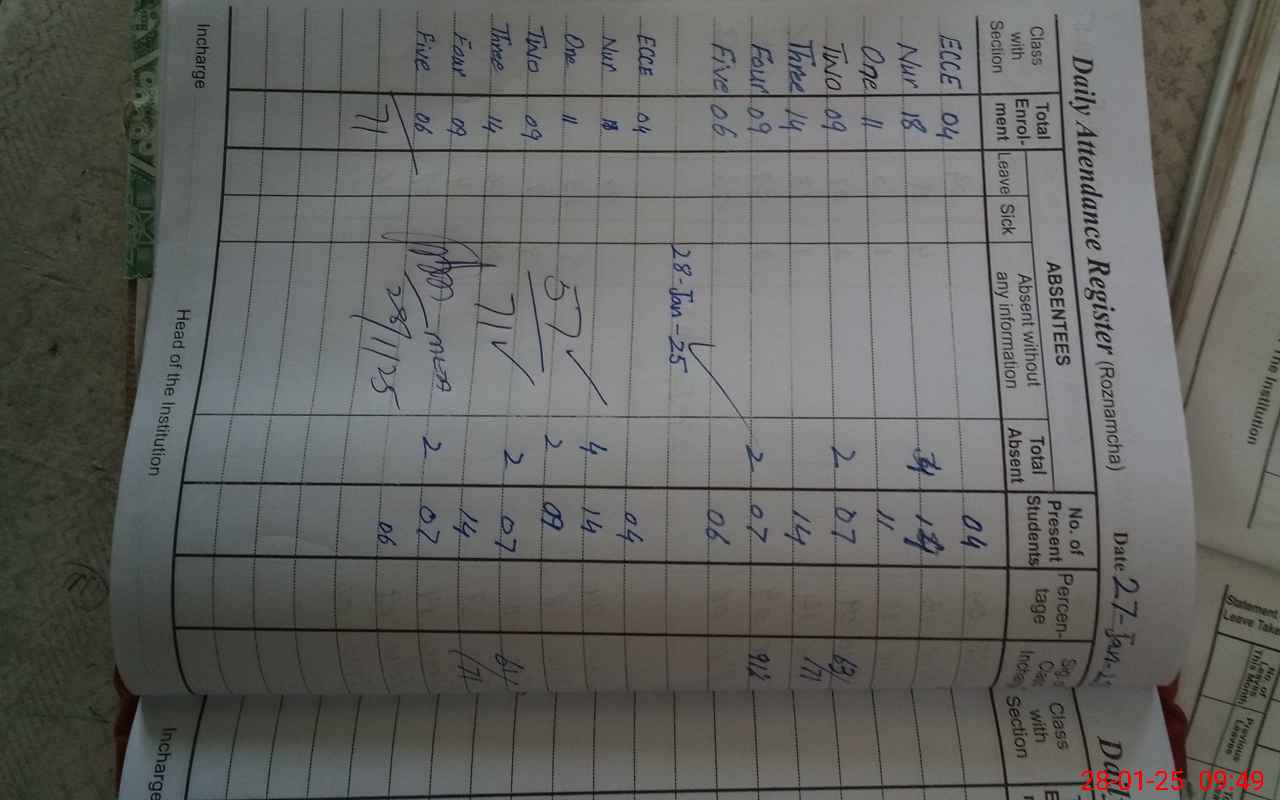 Daily Attendance Register (Roznamcha) Date 27-Jan-25
Class with Section Total Enrol-ment ABSENTEES No. of Present Students Percen-tage Sig. Class Incharge
Leave Sick Absent without any information Total Absent
ECCE 04 04
Nur 18
One 11 11
Two 09 2 07 69/
Three 14 14 /71
Four 09 2 07
Five 06 06
28-Jan-25
ECCE 04 04
Nur 18 4 14
One 11 2 09
Two 09 57
Three 14 71 2 07
Four 09 14 /71
Five 06 2 07
71 28/1/25 06
Incharge Head of the Institution
the Institution
Statement
Leave Take
No. of Leaves This Month
Previous Leaves
Class with Section
Incharge
28-01-25 09:49